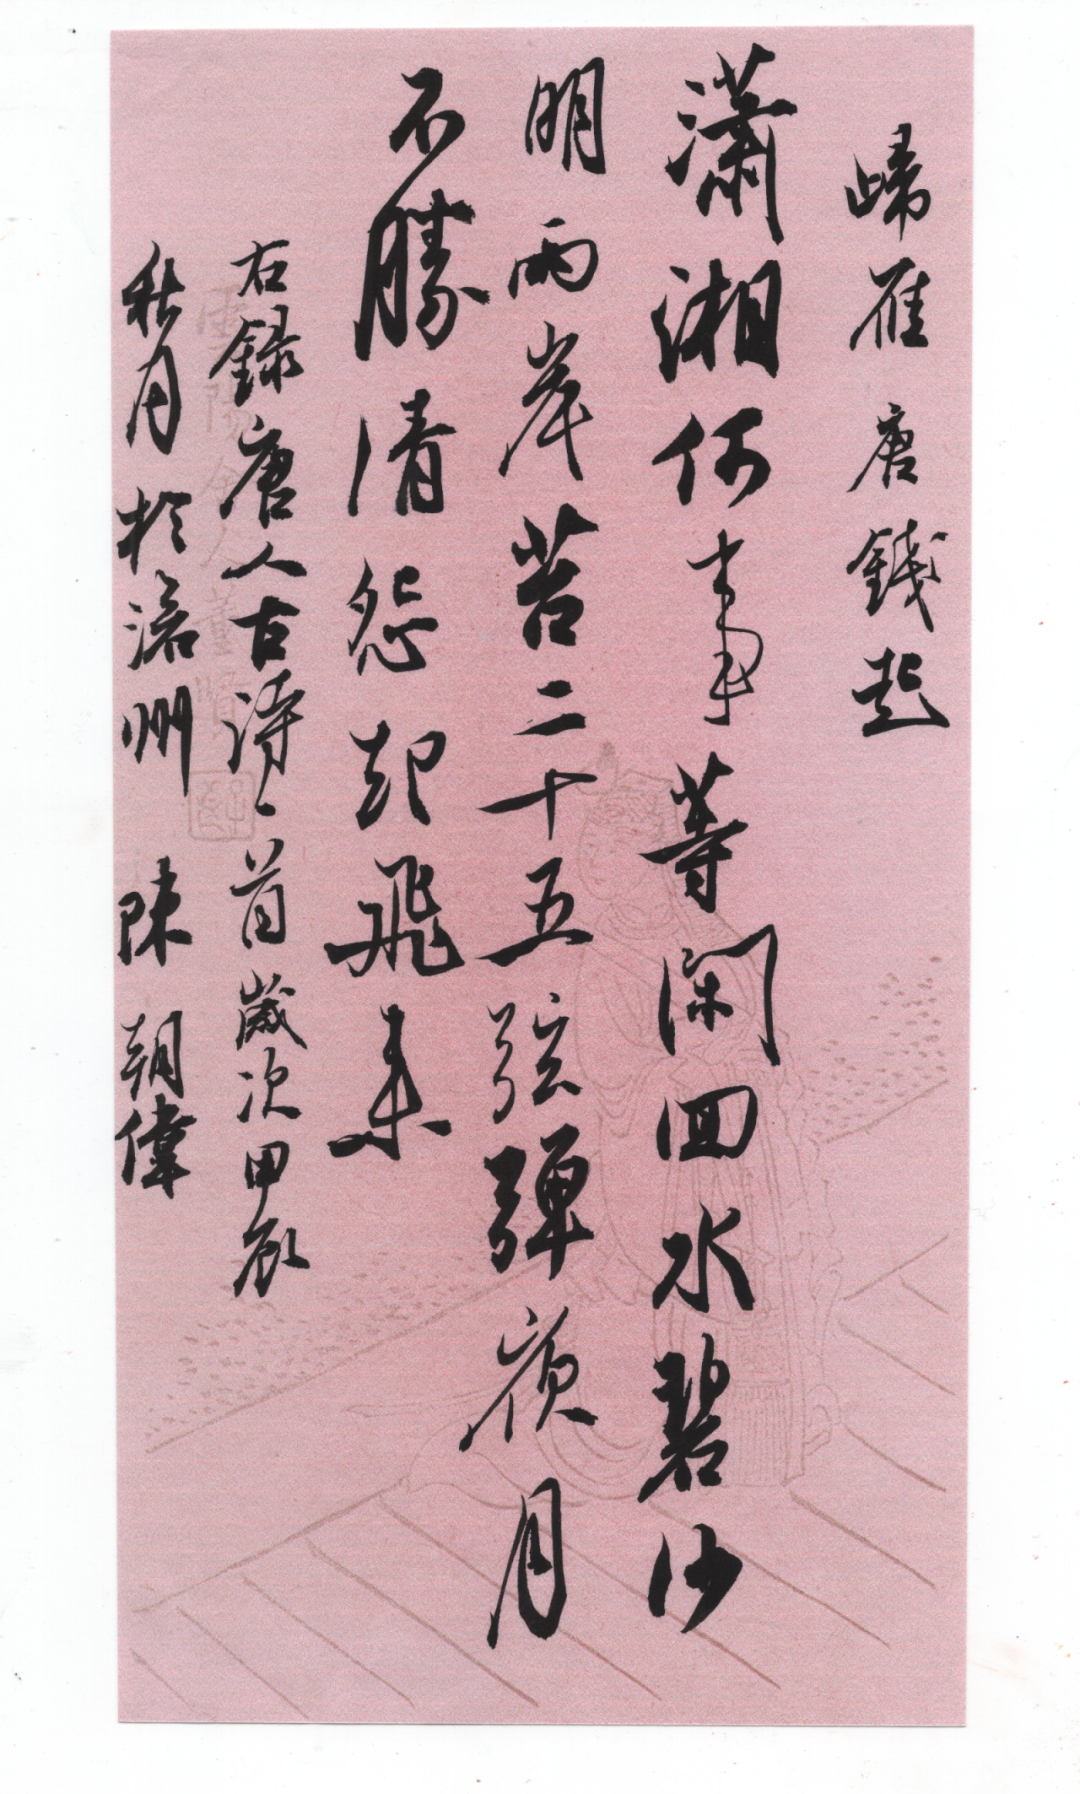 歸雁 唐 錢起
瀟湘何事等閑回水碧沙
明兩岸苔二十五弦彈夜月
不勝清怨却飛來
右錄唐人古詩一首歲次甲辰
秋月於滄州 陳朝偉